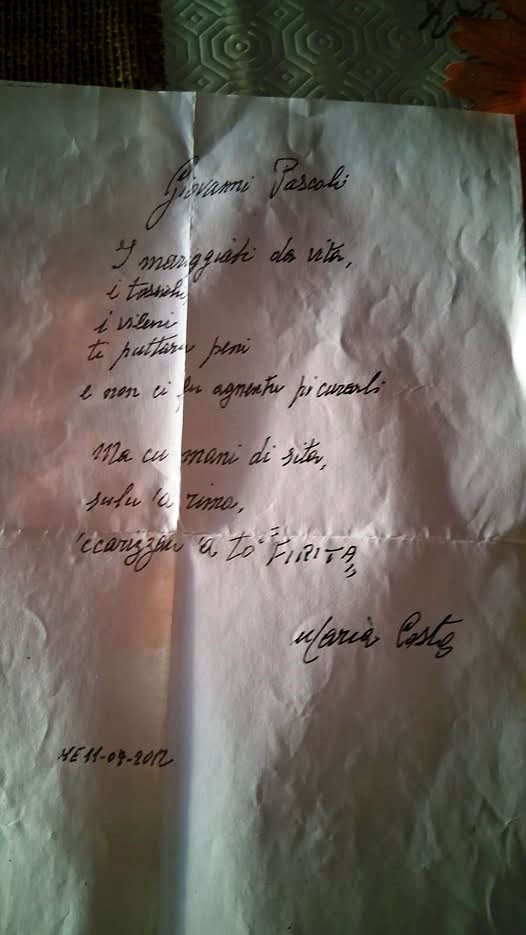 Giovanni Pascoli
I mariggiati da vita,
i tossichi,
i vileni
ti puttaru peni
e non ci fu agnentu pi curarli
Ma cu mani di sita,
sulu 'a rima,
'ccarizzau 'a to "FIRITA"
Maria Costa
ME 11-04-2012